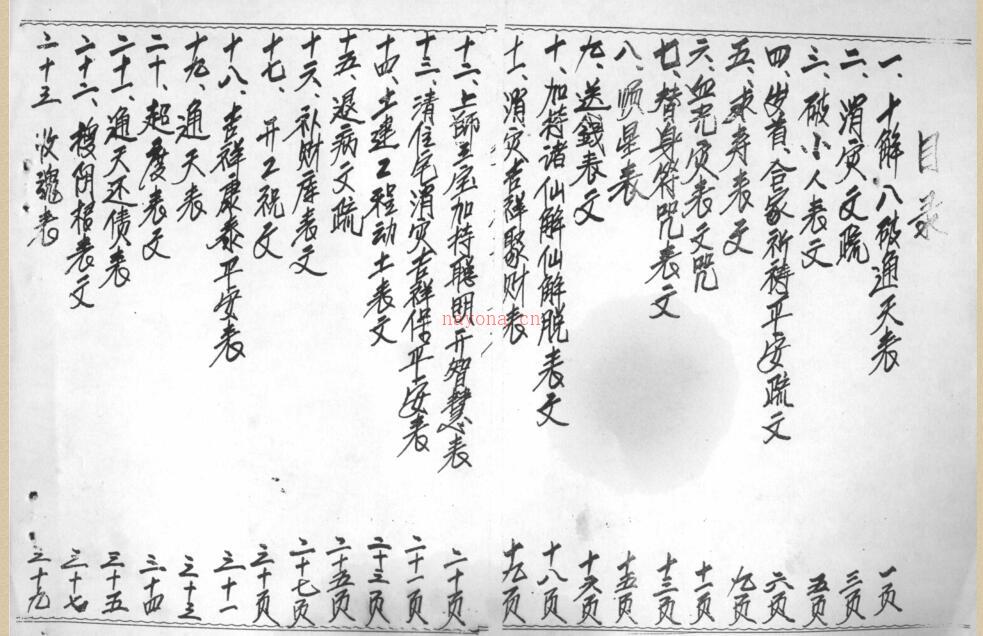 目录
一、十解八破通天表 一页
二、消灾文疏 三页
三、破小人表文 五页
四、岁首合家祈祷平安疏文 六页
五、求寿表文 九页
六、血光灾表文咒 十一页
七、替身符咒表文 十三页
八、顺星表 十五页
九、送錢表文 十六页
十、加持诸仙解仙解脱表文 十八页
十一、消灾吉祥聚财表 十九页
十二、上師三宝加持聪明开智慧表 二十页
十三、清住宅消灾吉祥保平安表 二十一页
十四、土建工程动土表文 二十三页
十五、退病文疏 二十五页
十六、补财库表文 二十七页
十七、开工祝文 三十页
十八、吉祥康泰平安表 三十一
十九、通天表 三十三
二十、超度表文 三十四
二十一、通天还债表 三十五
二十二、拨阴招表文 三十七
二十三 收魂表 三十九
nayona.cn